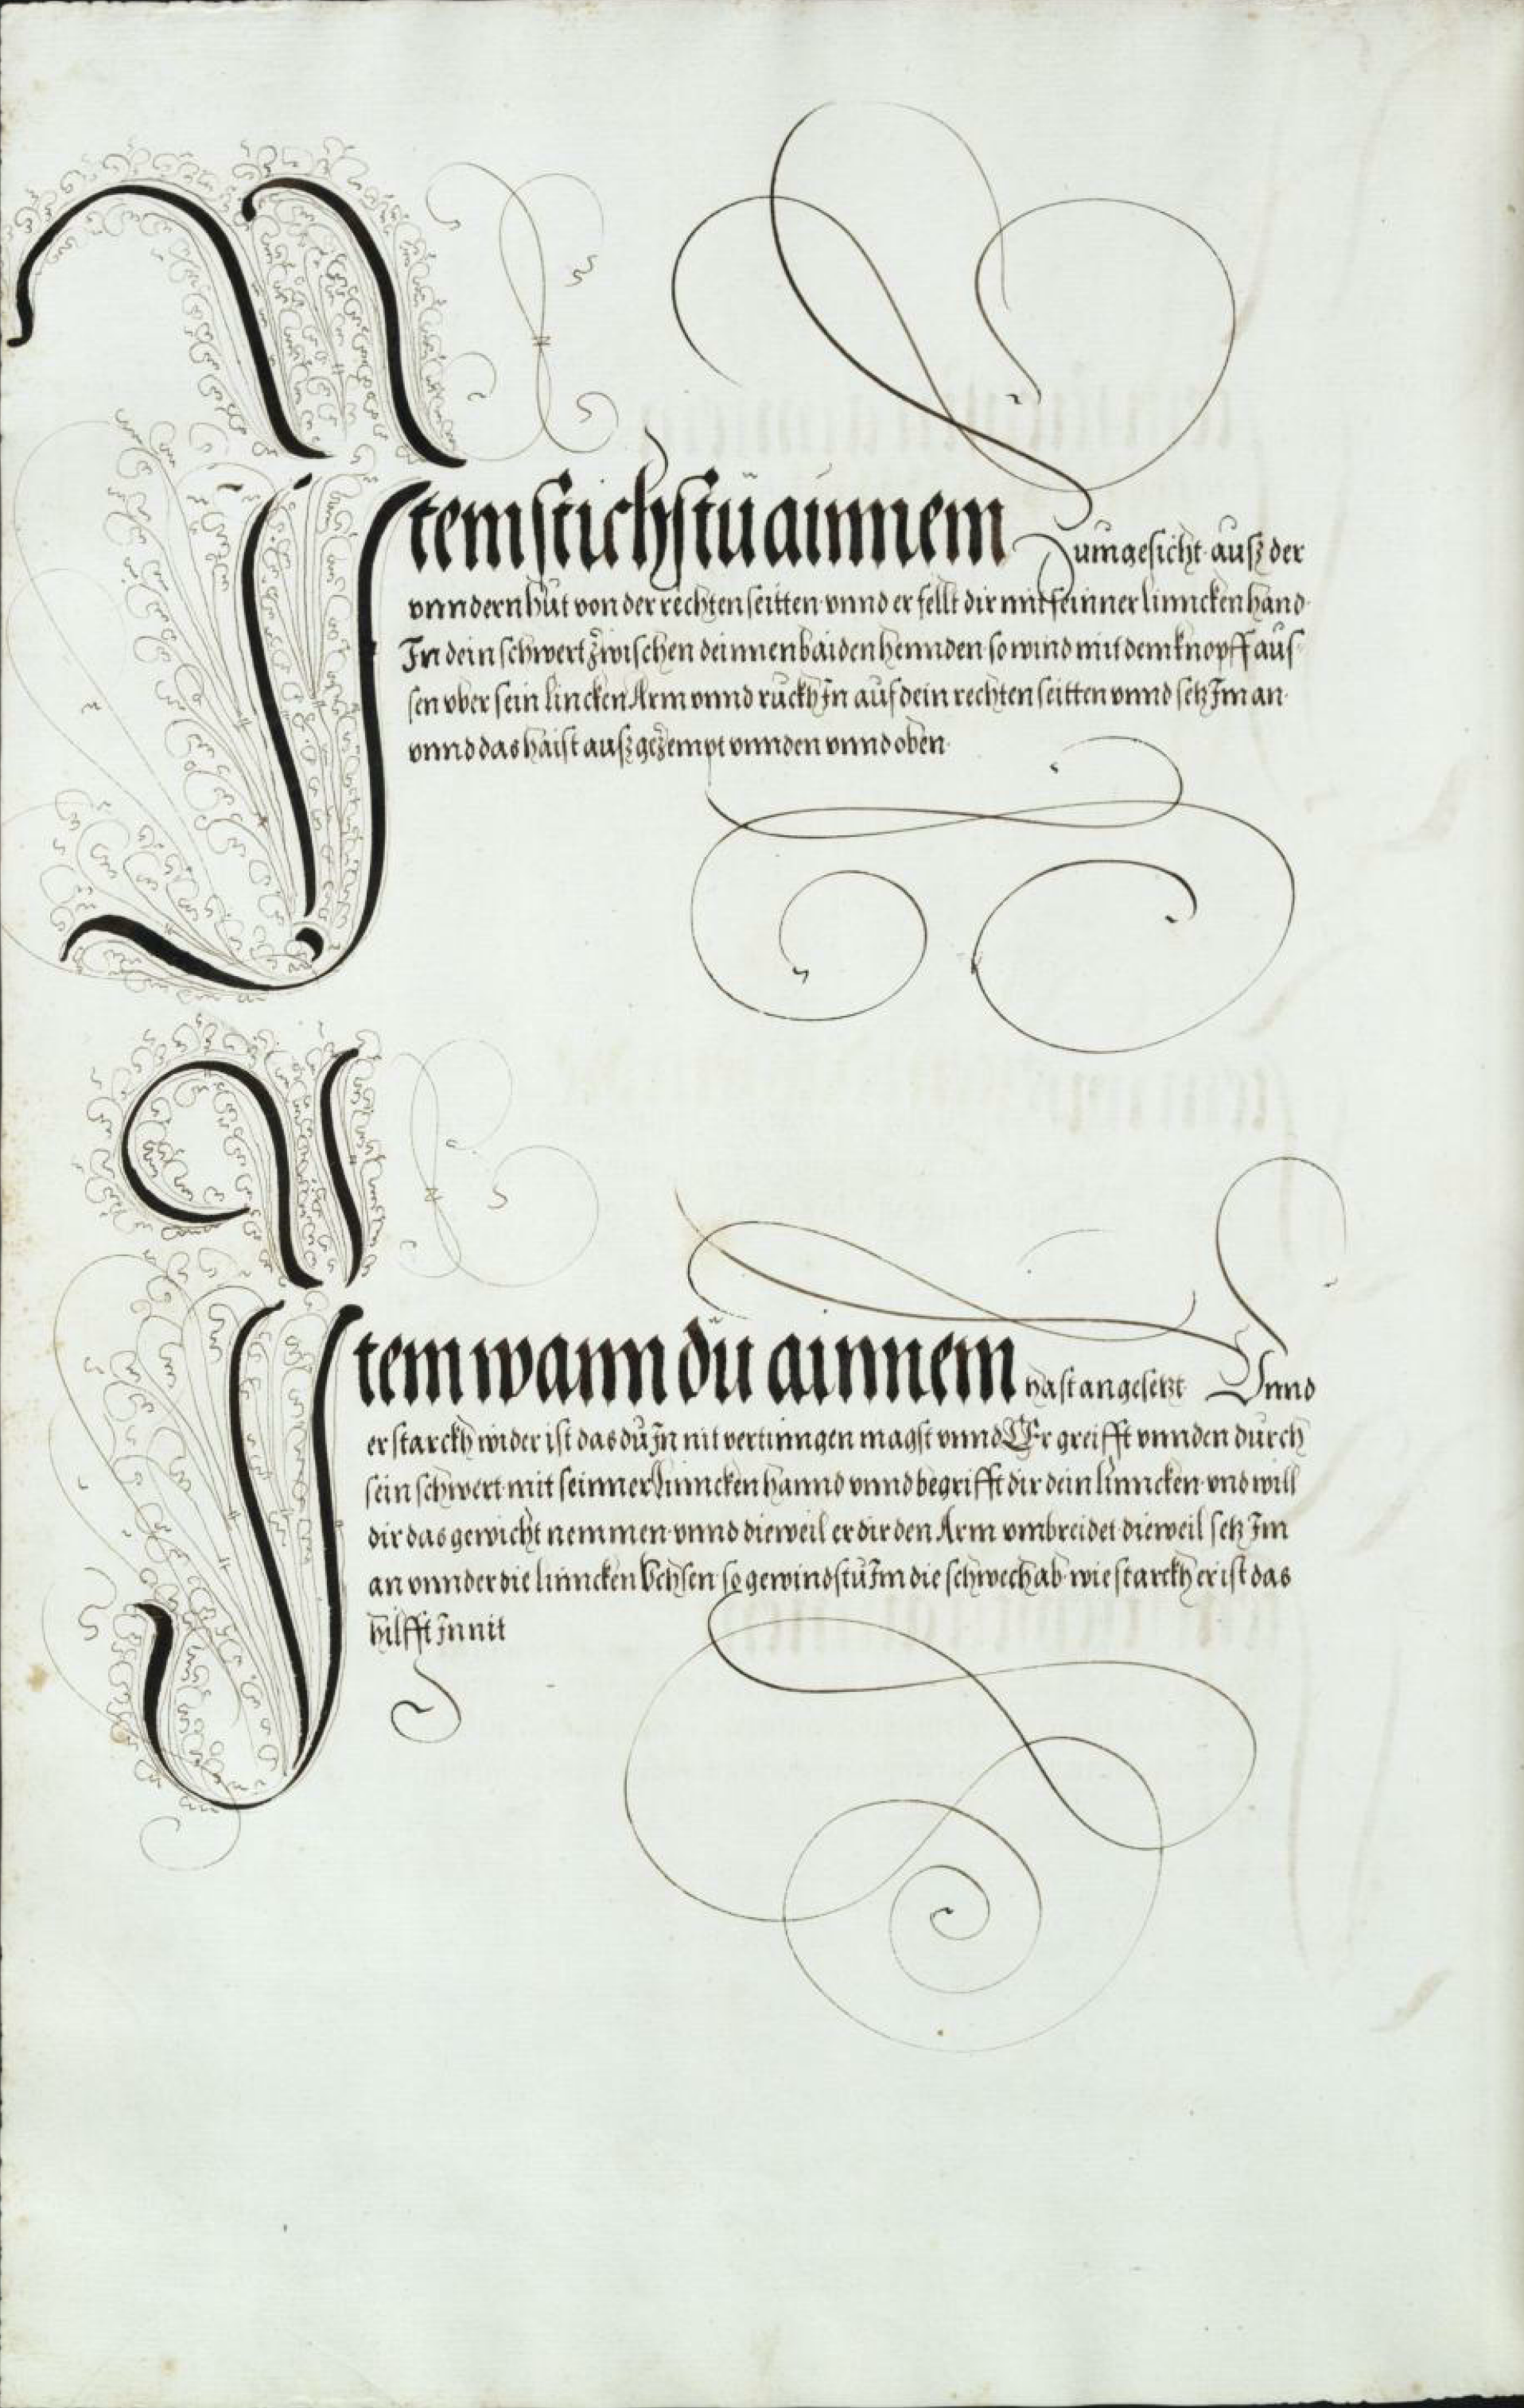 Item stichstu ainnem Zum gesicht auß der
vnndern hůt von der rechten seitten vnnd er fellt dir mit seinner linncken hand
In dein schwert zwischen deinnen baiden hennden so wind mit dem knopff aus
sen vber sein lincken Arm vnnd ruckh In auf dein rechten seitten vnnd setz Im an
vnnd das haist außgezempt vnnden vnnd oben
Item wann du ainnem hast angesetzt Vnnd
er starckh wider ist das du In nit vertinngen magst vnnd Er greifft vnnden durch
sein schwert mit seinner linncken hannd vnnd begrifft dir dein linncken vnd will
dir das gewicht nemmen vnnd dieweil er dir den Arm vmbreidet dieweil setz Im
an vnnder die linncken Vchsen so gewindstu Im die schwech ab wie starckh er ist das
hilfft In nit